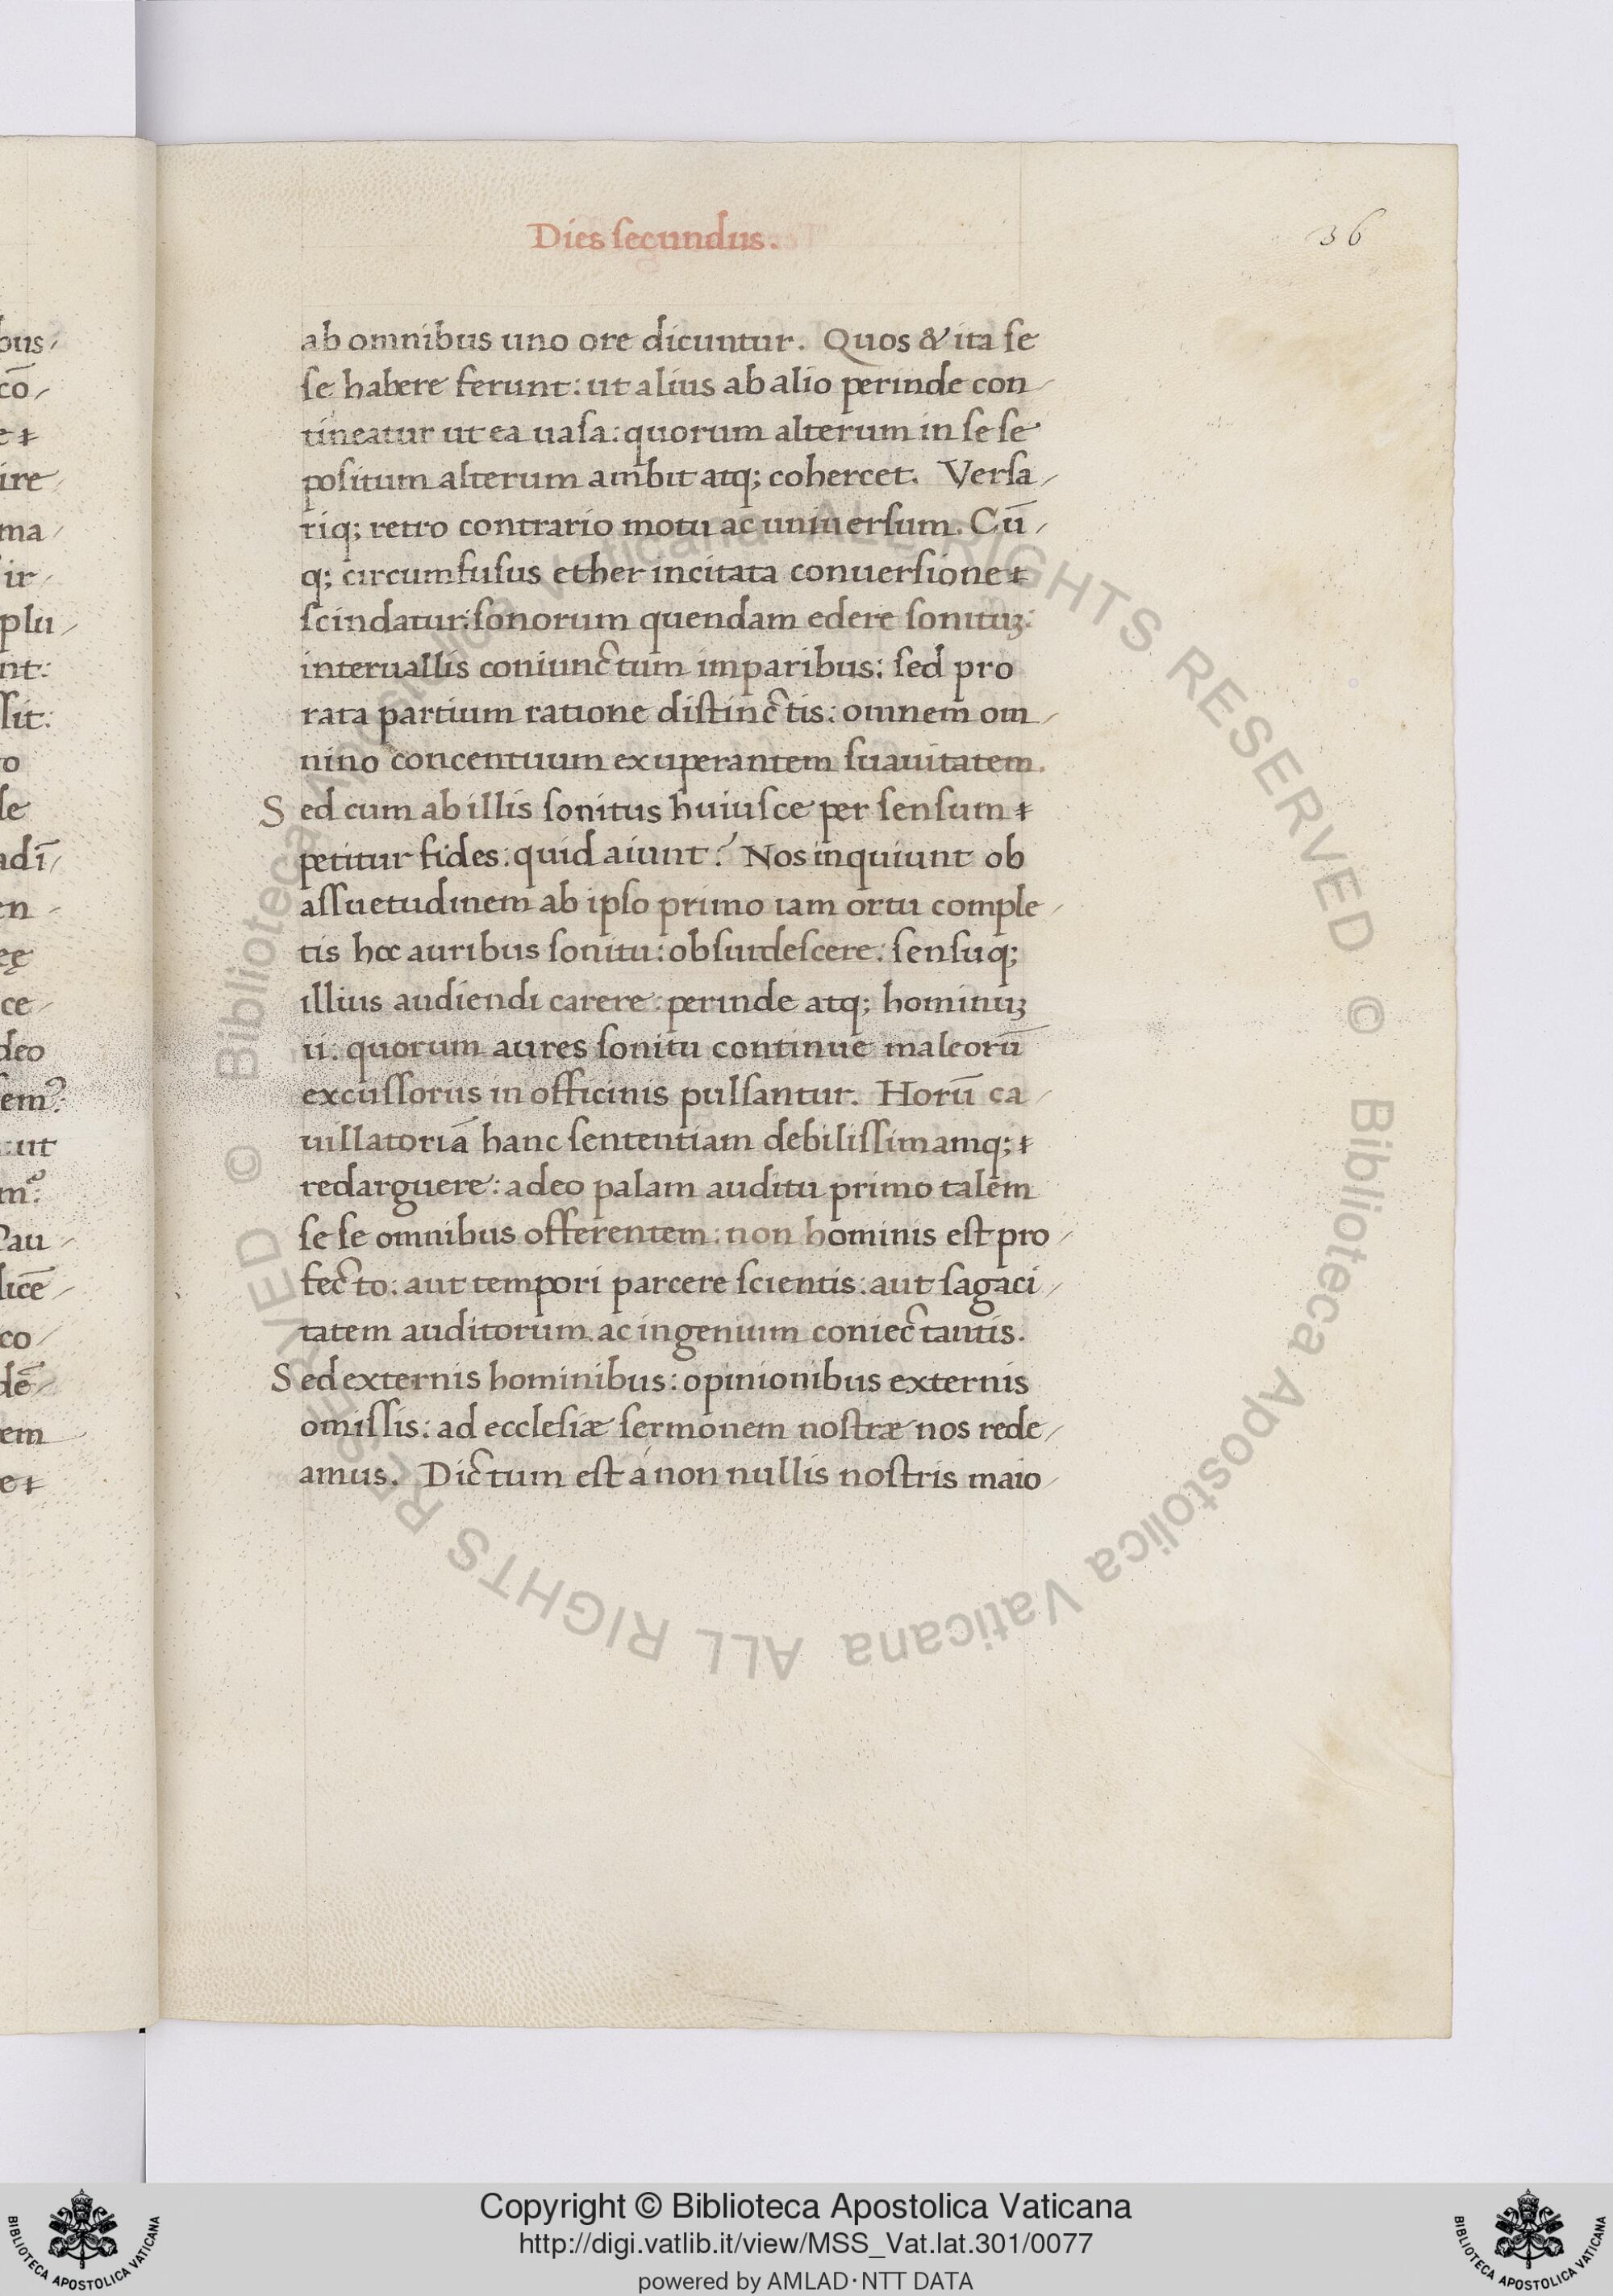 Dies secundus.
36
ab omnibus uno ore dicuntur. Quos & ita se
se habere ferunt: ut alius ab alio perinde con-
tineatur ut ea uasa: quorum alterum in se se
positum alterum ambit atq; cohercet. Versa-
riq; retro contrario motu ac uniuersum. Cū-
q; circumfusus ether incitata conuersione
scindatur: sonorum quendam edere sonituʒ:
interuallis coniunctum imparibus: sed pro
rata partium ratione distinctis: omnem om-
nino concentuum exuperantem suauitatem.
Sed cum ab illis sonitus huiusce per sensum
petitur fides: quid aiunt? Nos inquiunt ob
assuetudinem ab ipso primo iam ortu comple-
tis hoc auribus sonitu: obsurdescere: sensuq;
illius audiendi carere: perinde atq; hominuʒ
ii: quorum aures sonitu continue maleorū
excussorus in officinis pulsantur. Horū ca-
uillatoriā hanc sententiam debilissimamq;
redarguere: adeo palam auditu primo talem
se se omnibus offerentem: non hominis est pro-
fecto: aut tempori parcere scientis: aut sagaci-
tatem auditorum ac ingenium coniectantis.
Sed externis hominibus: opinionibus externis
omissis: ad ecclesiæ sermonem nostræ nos rede-
amus. Dictum est á non nullis nostris maio-
bus-
cō-
ire
ma-
ir-
plu-
nt:
ssit:
o
se
adī-
en-
eę
ce-
deo
sem?
ut
m?
Cau-
licē-
co-
dē-
em
© Biblioteca Apostolica Vaticana ALL RIGHTS RESERVED © Biblioteca Apostolica Vaticana ALL RIGHTS RESERVED
Copyright © Biblioteca Apostolica Vaticana
http://digi.vatlib.it/view/MSS_Vat.lat.301/0077
powered by AMLAD·NTT DATA
BIBLIOTECA APOSTOLICA VATICANA
BIBLIOTECA APOSTOLICA VATICANA